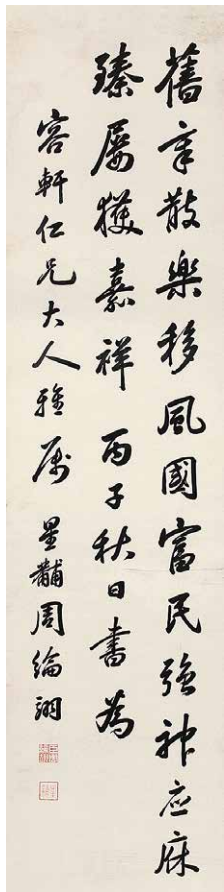 舊章散樂移風國富民強神应庥
臻屢獲嘉祥 丙子秋日書為
容軒仁兄大人雅属 星黼周綸翊